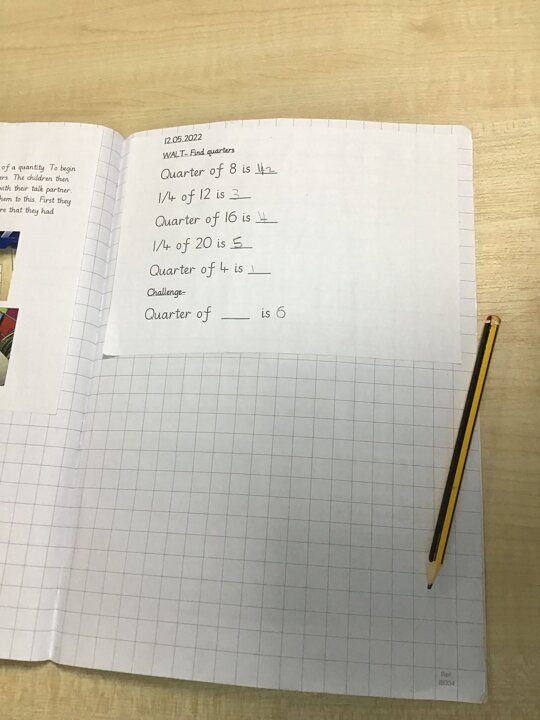 of a quantity. To begin
ers. The children then
with their talk partner.
hem to this. First they
re that they had
12.05.2022
WALT- Find quarters
Quarter of 8 is 2
1/4 of 12 is 3
Quarter of 16 is 4
1/4 of 20 is 5
Quarter of 4 is 1
Challenge-
Quarter of ___ is 6
Ref: